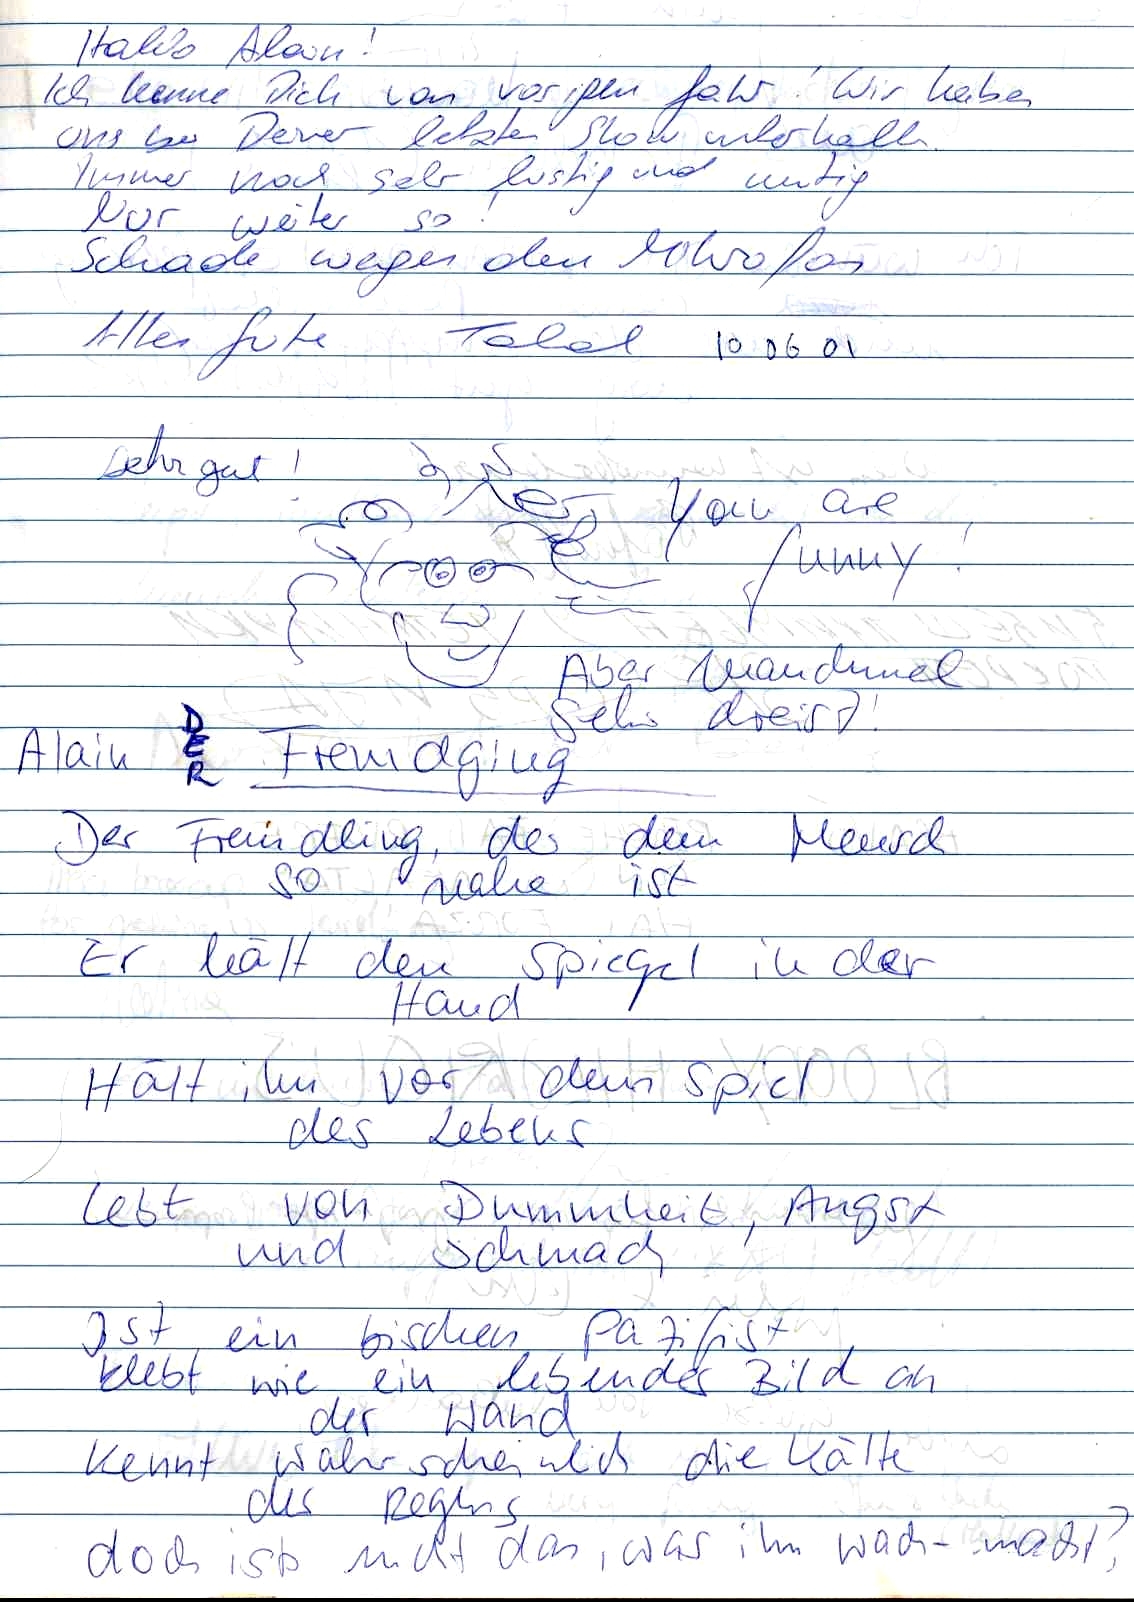 Hallo Alain!
Ich kenne Dich von vorigen Jahr! Wir haben
uns bei Deiner letzten Show unterhalten.
Immer noch sehr lustig und mutig
Nur weiter so!
Schade wegen den Mikrofon
Alles Gute Talal 10 06 01
Sehr gut!
You are
funny!
Aber Manchmal
Sehr dreist!
Alain DER Fremdging
Der Fremdling, der dem Mensch
so nahe ist
Er hält den Spiegel in der
Hand
Hält ihn vor dem Spiel
des Lebens
Lebt von Dummheit, Angst
und Schmach
Ist ein bischen Pazifist
klebt wie ein lebendes Bild an
der Wand
Kennt wahrscheinlich die Kälte
des Regens
doch ists nicht das, was ihn wach-macht?